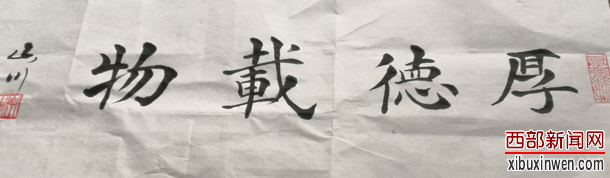 厚德載物
山川
西部新闻网
xibuxinwen.com